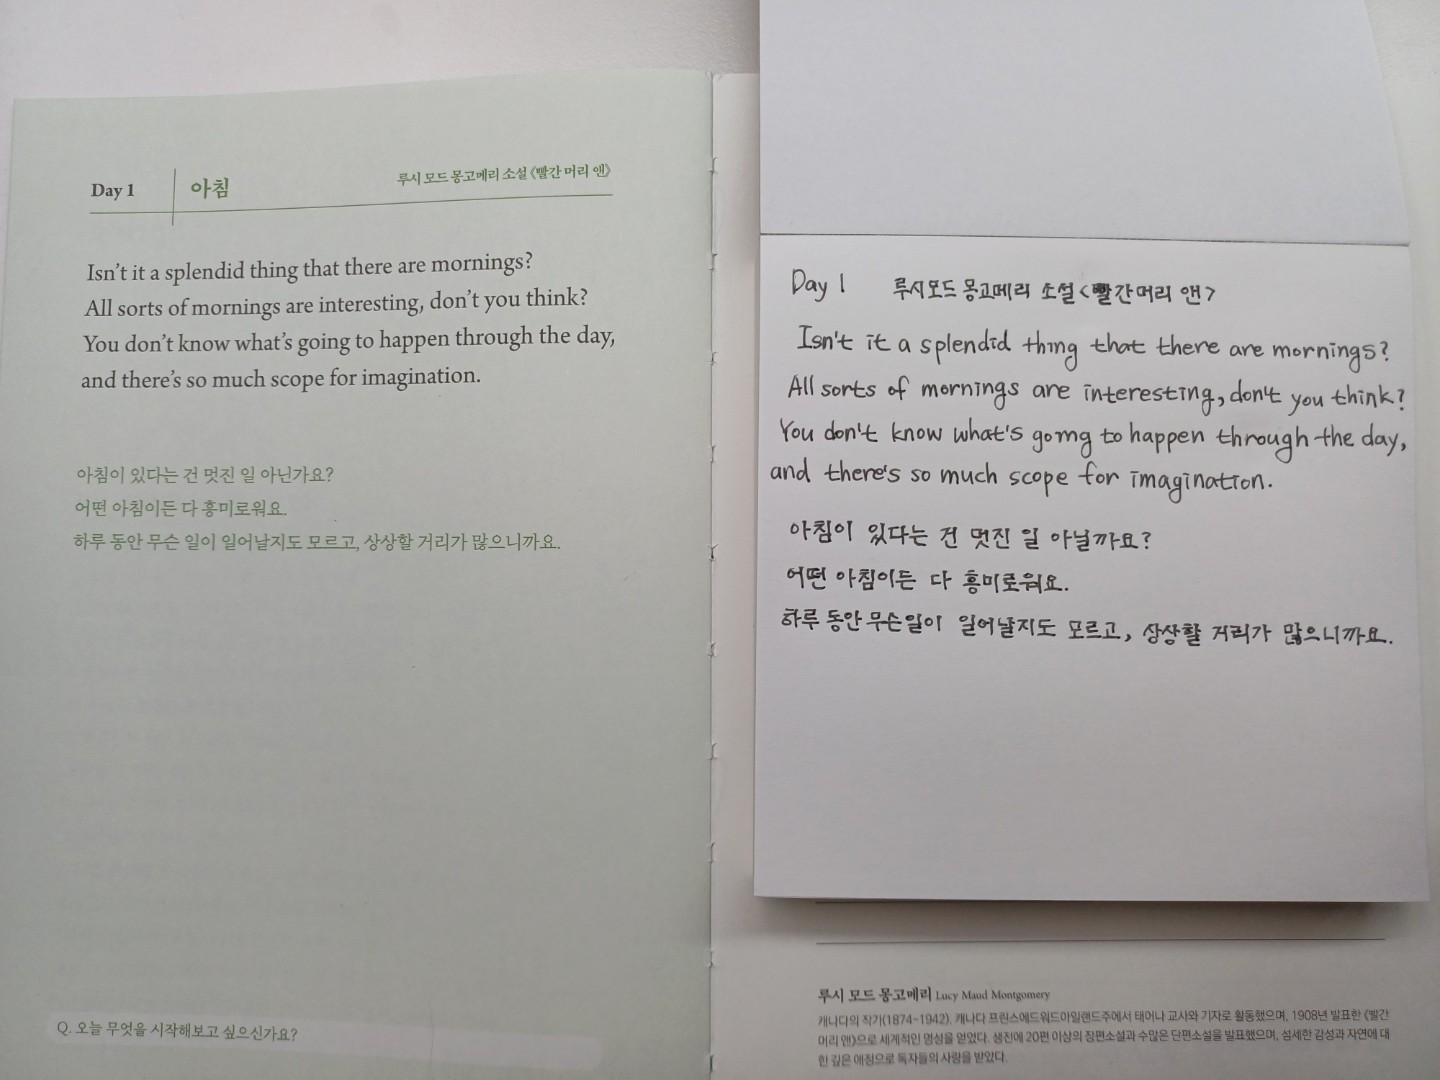 Day 1 아침 루시 모드 몽고메리 소설 《빨간 머리 앤》
Isn't it a splendid thing that there are mornings?
All sorts of mornings are interesting, don't you think?
You don't know what's going to happen through the day,
and there's so much scope for imagination.
아침이 있다는 건 멋진 일 아닌가요?
어떤 아침이든 다 흥미로워요.
하루 동안 무슨 일이 일어날지도 모르고, 상상할 거리가 많으니까요.
Q. 오늘 무엇을 시작해보고 싶으신가요?
Day 1 루시모드 몽고메리 소설 <빨간머리 앤>
Isn't it a splendid thing that there are mornings?
All sorts of mornings are interesting, don't you think?
You don't know what's going to happen through the day,
and there's so much scope for imagination.
아침이 있다는 건 멋진 일 아닐까요?
어떤 아침이든 다 흥미로워요.
하루 동안 무슨일이 일어날지도 모르고, 상상할 거리가 많으니까요.
루시 모드 몽고메리 Lucy Maud Montgomery
캐나다의 작가(1874~1942). 캐나다 프린스에드워드아일랜드주에서 태어나 교사와 기자로 활동했으며, 1908년 발표한 《빨간
머리 앤》으로 세계적인 명성을 얻었다. 생전에 20편 이상의 장편소설과 수많은 단편소설을 발표했으며, 섬세한 감성과 자연에 대
한 깊은 애정으로 독자들의 사랑을 받았다.